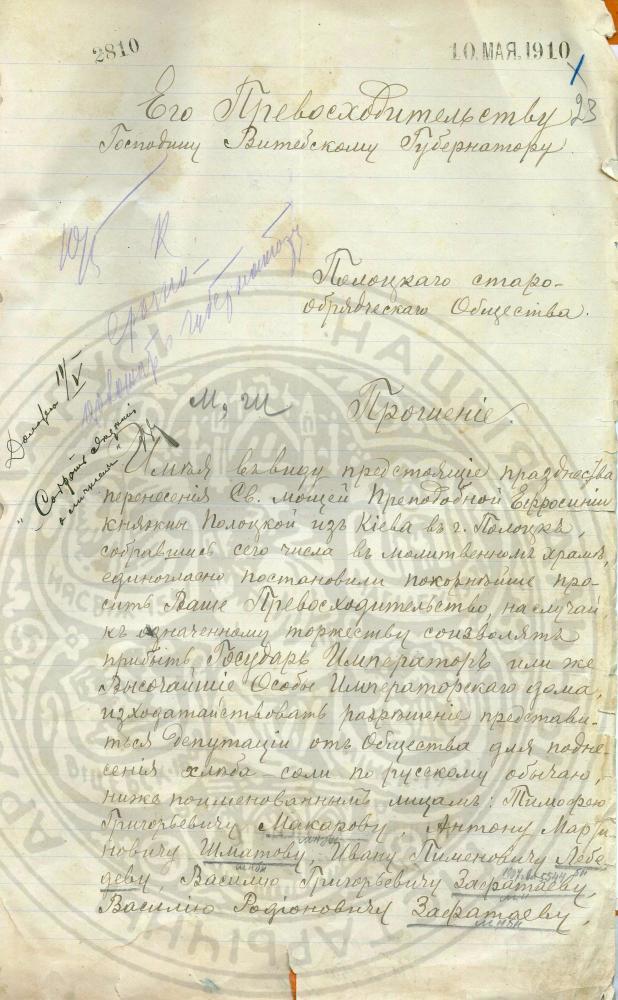 2810
10. МАЯ. 1910
23
Его Превосходительству
Господину Витебскому Губернатору
Полоцкаго старо-
обрядческаго Общества.
Прошенiе.
Имѣя въ виду предстоящiе празднества
перенесенiя Св. мощей Преподобной Ефросинiи
княжны Полоцкой изъ Кiева въ г. Полоцкъ,
собравшись сего числа въ молитвенномъ храмѣ,
единогласно постановили покорнѣйше про-
сить Ваше Превосходительство, на случай
къ означенному торжеству соизволятъ
прибыть Государь Императоръ или же
Высочайшiе Особы Императорскаго дома,
изходатайствовать разрѣшенiе представи-
ться Депутацiи отъ Общества для подне-
сенiя хлѣба-соли по русскому обычаю,
ниже поименованнымъ лицамъ: Тимофею
Григорьевичу Макарову, Антону Марти-
новичу Шматову, Ивану Пименовичу Лебе-
деву, Василiю Григорьевичу Зафатаеву,
Василiю Родiоновичу Зафатаеву,